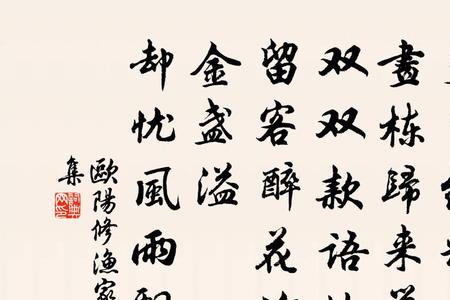 畫栋歸来
双双款语
留客醉花
金盏溢
却忧風雨
歐陽修漁家
集